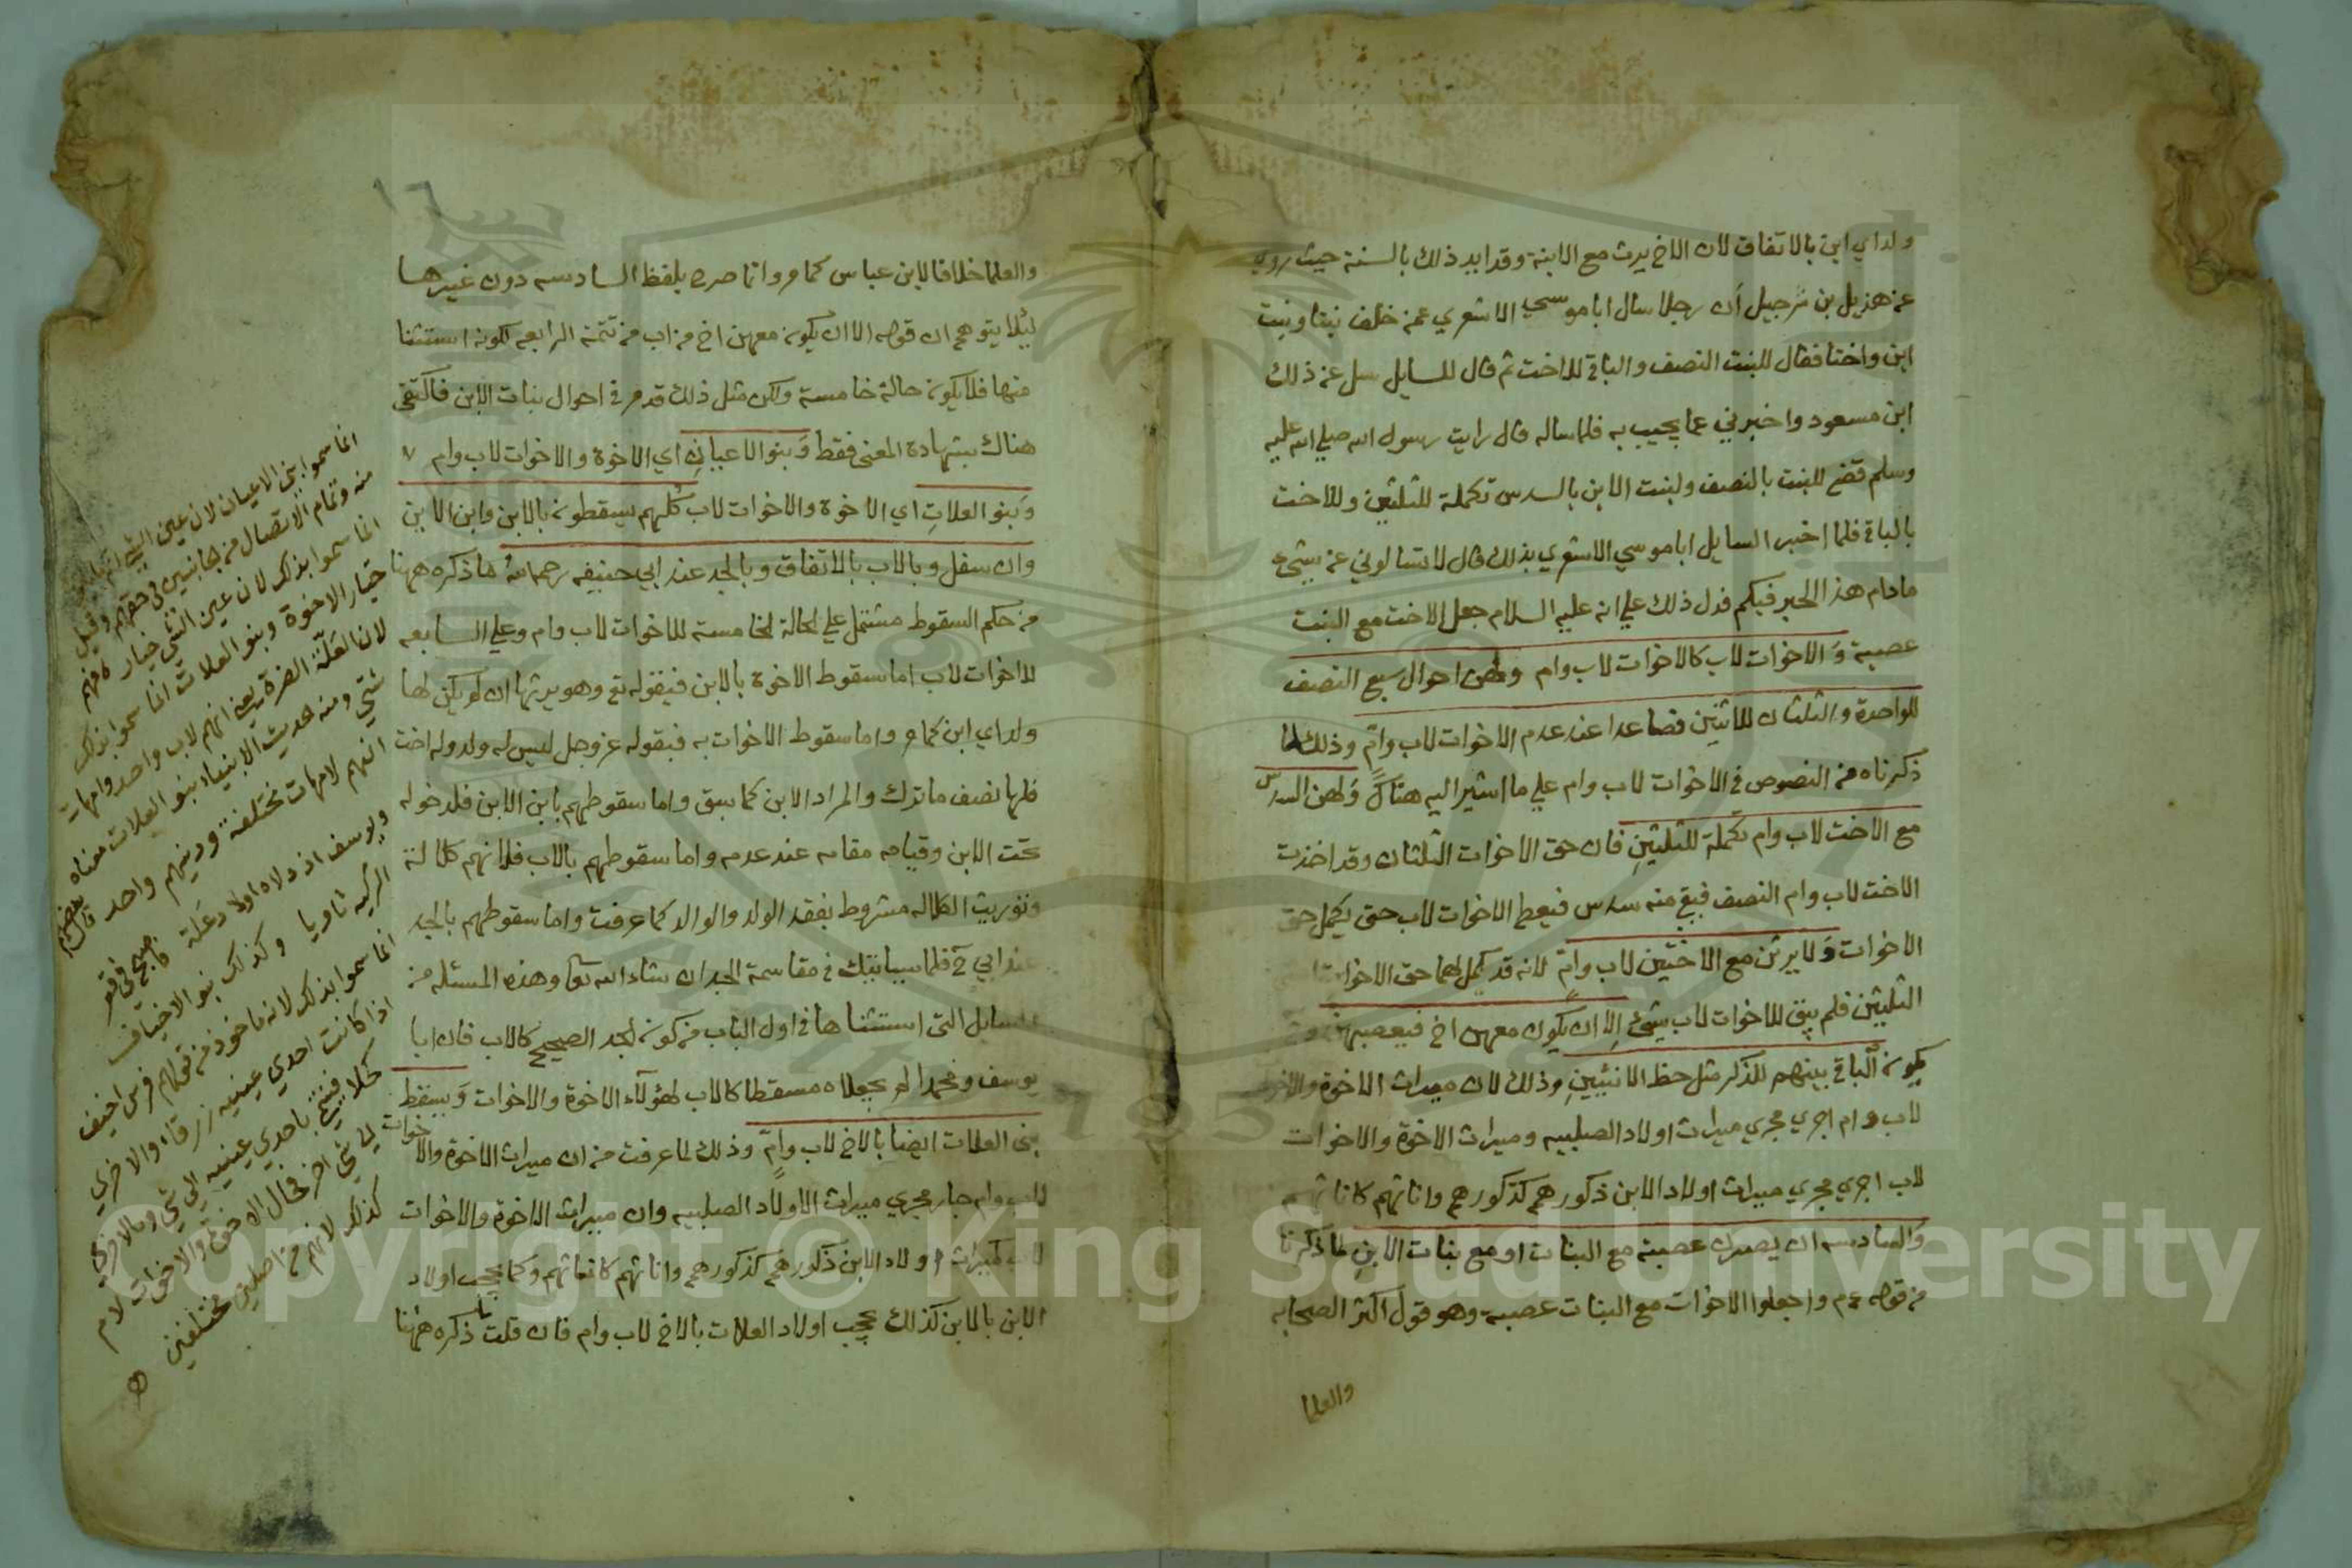 ولد اي ابن بالاتفاق لان الاخ يرث مع الابنة وقد ايد ذلك بالسنة حيث روي
عن هزيل بن شرحبيل أن رجلا سال ابا موسي الاشعري عمن خلف بنتا وبنت
ابن واختا فقال للبنت النصف والباقي للاخت ثم قال للسايل سل عن ذلك
ابن مسعود واخبرني عما يجيب به فلما ساله قال رايت رسول الله صلي الله عليه
وسلم قضي للبنت بالنصف ولبنت الابن بالسدس تكملة للثلثين وللاخت
بالباقي فلما اخبر السايل ابا موسي الاشعري بذلك قال لا تسالوني عن شيء
ما دام هذا الحبر فيكم فدل ذلك علي انه عليه السلام جعل الاخت مع البنت
عصبة وَالاخوات لاب كالاخوات لاب وام ولهن احوال سبع النصف
للواحدة والثلثان للاثنين فصاعدا عند عدم الاخوات لاب وامٍّ وذلك لما
ذكرناه من النصوص في الاخوات لاب وام علي ما اشير اليه هناك وَلهن السدس
مع الاخت لاب وام تكملة للثلثينِ فان حق الاخوات الثلثان وقد اخذت
الاخت لاب وام النصف فبقي منه سدس فيعطي الاخوات لاب حتي يكمل حق
الاخوات وَلا يرثن مع الاختين لاب وامٍّ لانه قد كمل لهما حق الاخوات
الثلثين فلم يبق للاخوات لاب شيء الا ان يكون معهن اخ فيعصبهن
يكون الباقي بينهم للذكر مثل حظ الانثيينِ وذلك لان ميراث الاخوة والاخوات
لاب وام اجري مجري ميراث اولاد الصلبيه وميراث الاخوة والاخوات
لاب اجري مجري ميراث اولاد الابن ذكورهم كذكورهم واناثهم كاناثهم
وَالسادسه ان يصرن عصبة مع البنات او مع بنات الابنِ لما ذكرنا
من قوله عم واجعلوا الاخوات مع البنات عصبة وهو قول اكثر الصحابه
والعلما
١٦
والعلما خلافا لابن عباس كما مر وانما صرح بلفظ السادسه دون غيرها
لئلا يتوهم ان قوله الا ان يكون معهن اخ من اب من تتمة الرابعه لكونه استثنا
منها فلا يكون حالة خامسة ولكن مثل ذلك قد مر في احوال بنات الابن فاكتفي
هناك بشهادة المعني فقط وَبنو الاعيانِ اي الاخوة والاخوات لاب وام
وَبنو العلاتِ اي الاخوة والاخوات لاب كُلهم يسقطون بالابن وابن الابن
وان سفل وبالاب بالاتفاق وبالجد عند ابي حنيفه رحمه الله ما ذكره ههنا
من حكم السقوط مشتمل علي الحالة الخامسة للاخوات لاب وام وعلي السابعه
للاخوات لاب اما سقوط الاخوة بالابن فبقوله تع وهو يرثها ان لم يكن لها
ولد اي ابن كما مر واما سقوط الاخوات به فبقوله عز وجل ليس له ولد وله اخت
فلها نصف ما ترك والمراد الابن كما سبق واما سقوطهم بابن الابن فلدخوله
تحت الابن وقيامه مقامه عند عدمه واما سقوطهم بالاب فلانهم كلالة
وتوريث الكلاله مشروط بفقد الولد والوالد كما عرفت واما سقوطهم بالجد
عند ابي ح فلما سياتيك في مقاسمة الجد ان شاء الله تعا وهذه المسئله من
المسايل التي استثناها في اول الباب من كون الجد الصحيح كالاب فان ابا
يوسف ومحمدا لم يجعلاه مسقطا كالاب لهؤلآء الاخوة والاخوات وَيسقط
بني العلات ايضا بالاخ لاب وامٍّ وذلك لما عرفت من ان ميراث الاخوة والاخوات
لاب وام جار مجري ميراث الاولاد الصلبيه وان ميراث الاخوة والاخوات
لاب كميراث اولاد الابن ذكورهم كذكورهم واناثهم كاناثهم وكما يحجب اولاد
الابن بالابن كذلك يحجب اولاد العلات بالاخ لاب وام فان قلت ذكره ههنا
انما سموا بني الاعيان لان عين الشي
منه وتمام الاتصال من جانبين في حقهم وقيل
انما سموا بذلك لان عين الشي خياره فهم
خيار الاخوة وبنو العلات انما سموا بذلك
لان العَلّة الضرة يعني انهم لاب واحد وامهات
شتي ومنه حديث الانبياء بنو العلات معناه
انهم لامهات مختلفة ودينهم واحد قال
ويوسف اذ دلاه اولاد علة
وكذلك بنو الاخياف
انما سموا بذلك لانه ماخوذ من قولهم فرس اخيف
اذا كانت احدي عينيه زرقاء والاخري
كحلا فينظر باحدي عينيه الي شي وبالاخري
الي شي اخر فحال الاخوة والاخوات لام
كذلك لانهم من اصلين مختلفين
Copyright © King Saud University
1957